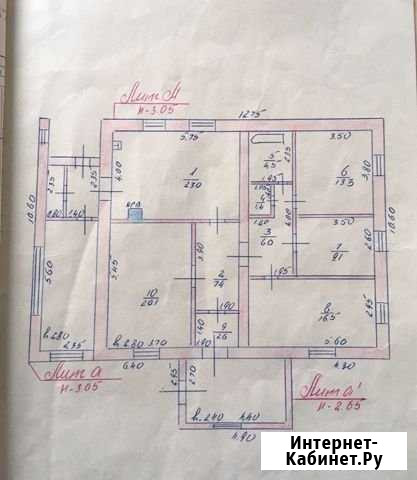 Лит А
н-3.05
12.75
5.75
3.50
10.60
2.35
2.35
4.00
1
23.0
5
4.5
2.25
6
13.3
3.80
1.95
4
1.4
АГВ
1.40
3.50
3
6.0
4.00
7
9.1
2.60
10.60
5.60
5.45
10
20.1
3.90
2
7.4
1.95
8
16.5
2.95
1.90
9
2.6
1.40
1.90
h.2.80
2.35
h.2.80
3.70
5.60
6.40
4.80
Лит а
н-3.05
2.95
2.70
Лит а'
н-2.65
h.2.40
4.40
4.90
Интернет-
Кабинет.Ру